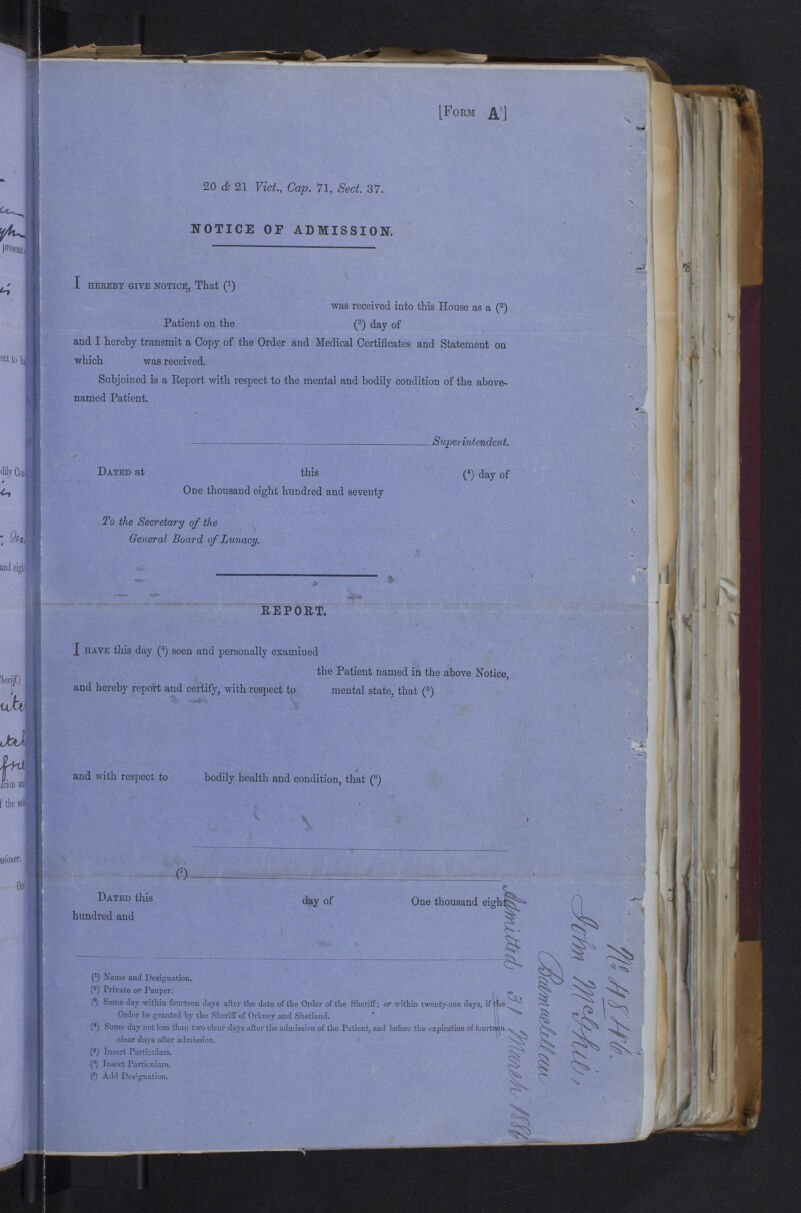 [FORM A¹]
20 & 21 Vict., Cap. 71, Sect. 37.
NOTICE OF ADMISSION.
I HEREBY GIVE NOTICE, That (¹)
was received into this House as a (²)
Patient on the (³) day of
and I hereby transmit a Copy of the Order and Medical Certificates and Statement on
which was received.
Subjoined is a Report with respect to the mental and bodily condition of the above-
named Patient.
Superintendent.
DATED at this (⁴) day of
One thousand eight hundred and seventy
To the Secretary of the
General Board of Lunacy.
REPORT.
I HAVE this day (⁴) seen and personally examined
the Patient named in the above Notice,
and hereby report and certify, with respect to mental state, that (⁵)
and with respect to bodily health and condition, that (⁶)
(⁷)
DATED this day of One thousand eight
hundred and
(¹) Name and Designation.
(²) Private or Pauper.
(³) Some day within fourteen days after the date of the Order of the Sheriff; or within twenty-one days, if the
Order be granted by the Sheriff of Orkney and Shetland.
(⁴) Some day not less than two clear days after the admission of the Patient, and before the expiration of fourteen
clear days after admission.
(⁵) Insert Particulars.
(⁶) Insert Particulars.
(⁷) Add Designation.
No 4846.
John McPhie,
Admitted 31 March 1886
present,
and eigh